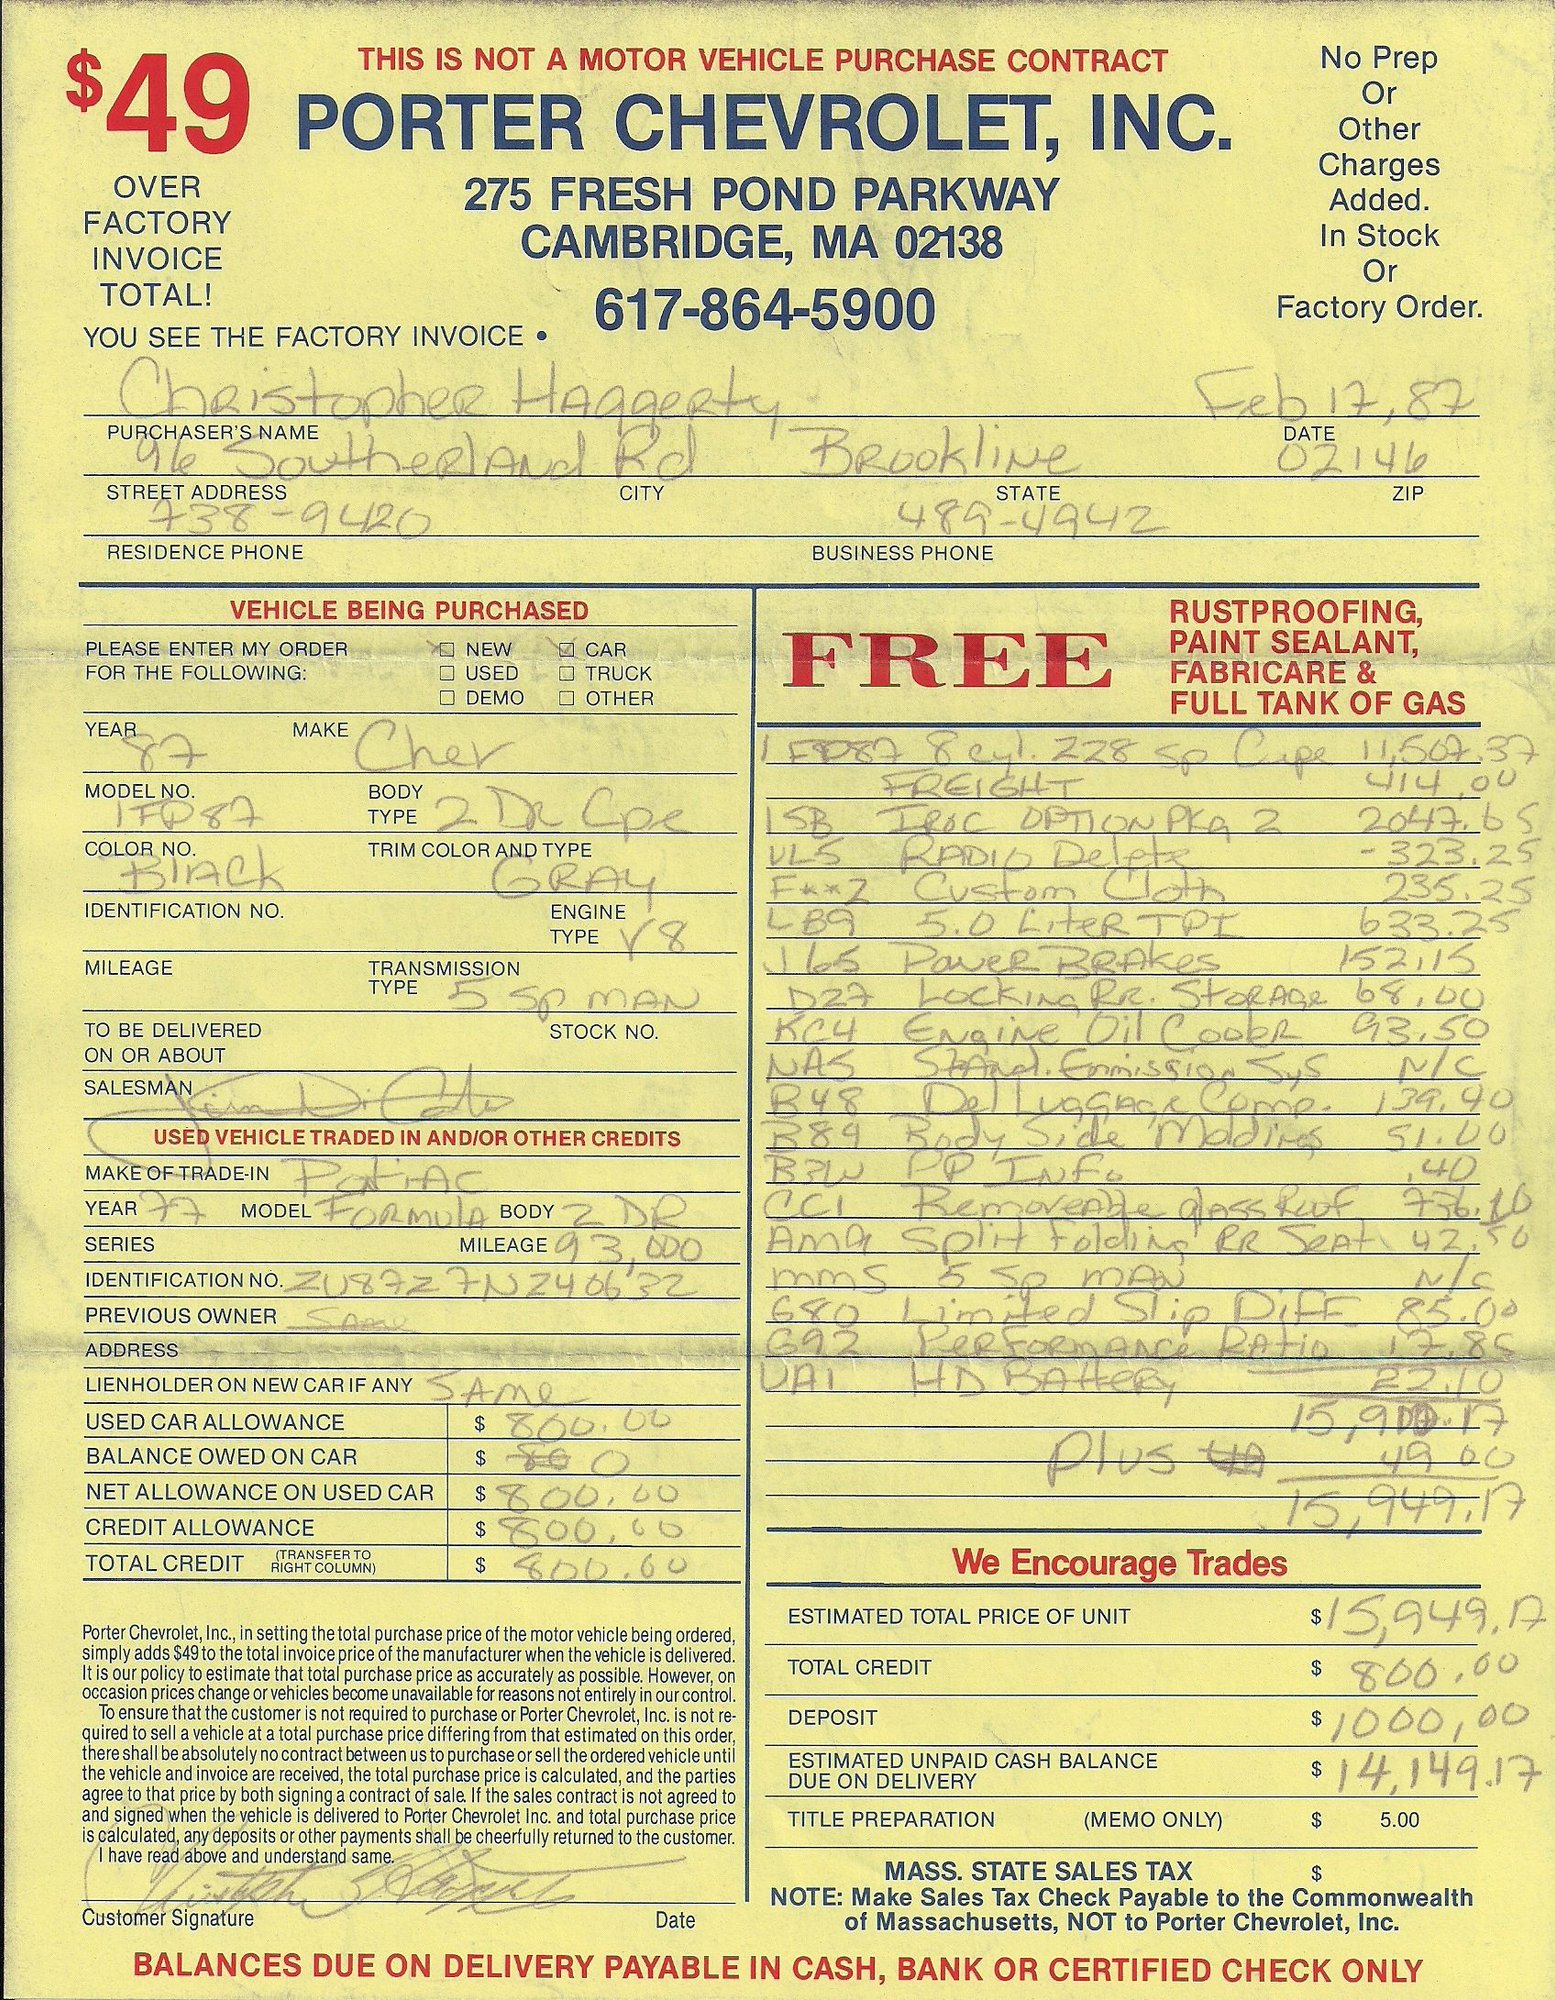 $49
OVER
FACTORY
INVOICE
TOTAL!
YOU SEE THE FACTORY INVOICE •
THIS IS NOT A MOTOR VEHICLE PURCHASE CONTRACT
PORTER CHEVROLET, INC.
275 FRESH POND PARKWAY
CAMBRIDGE, MA 02138
617-864-5900
No Prep
Or
Other
Charges
Added.
In Stock
Or
Factory Order.
Christopher Haggerty Feb 17, 87
PURCHASER'S NAME DATE
96 Southerland Rd Brookline 02146
STREET ADDRESS CITY STATE ZIP
738-9420 489-4942
RESIDENCE PHONE BUSINESS PHONE
VEHICLE BEING PURCHASED
PLEASE ENTER MY ORDER NEW CAR
FOR THE FOLLOWING: USED TRUCK
DEMO OTHER
YEAR 87 MAKE Chev
MODEL NO. 1FP87 BODY TYPE 2 DR Cpe
COLOR NO. Black TRIM COLOR AND TYPE GRAY
IDENTIFICATION NO. ENGINE TYPE V8
MILEAGE TRANSMISSION TYPE 5 SP MAN
TO BE DELIVERED ON OR ABOUT STOCK NO.
SALESMAN
USED VEHICLE TRADED IN AND/OR OTHER CREDITS
MAKE OF TRADE-IN Pontiac
YEAR 77 MODEL FORMULA BODY 2 DR
SERIES MILEAGE 93,000
IDENTIFICATION NO. 2U87Z7N240632
PREVIOUS OWNER Same
ADDRESS
LIENHOLDER ON NEW CAR IF ANY SAME
USED CAR ALLOWANCE $ 800.00
BALANCE OWED ON CAR $ 0
NET ALLOWANCE ON USED CAR $ 800.00
CREDIT ALLOWANCE $ 800.00
TOTAL CREDIT (TRANSFER TO RIGHT COLUMN) $ 800.00
Porter Chevrolet, Inc., in setting the total purchase price of the motor vehicle being ordered,
simply adds $49 to the total invoice price of the manufacturer when the vehicle is delivered.
It is our policy to estimate that total purchase price as accurately as possible. However, on
occasion prices change or vehicles become unavailable for reasons not entirely in our control.
To ensure that the customer is not required to purchase or Porter Chevrolet, Inc. is not re-
quired to sell a vehicle at a total purchase price differing from that estimated on this order,
there shall be absolutely no contract between us to purchase or sell the ordered vehicle until
the vehicle and invoice are received, the total purchase price is calculated, and the parties
agree to that price by both signing a contract of sale. If the sales contract is not agreed to
and signed when the vehicle is delivered to Porter Chevrolet Inc. and total purchase price
is calculated, any deposits or other payments shall be cheerfully returned to the customer.
I have read above and understand same.
Customer Signature Date
FREE
RUSTPROOFING,
PAINT SEALANT,
FABRICARE &
FULL TANK OF GAS
1FP87 8 cyl. Z28 Sp Cupe 11,507.37
FREIGHT 414.00
1SB IROC OPTION PKG 2 2047.65
UL5 RADIO Delete -323.25
F**2 Custom Cloth 235.25
LB9 5.0 Liter TPI 633.25
J65 Power Brakes 152.15
D27 Locking Rr. Storage 68.00
KC4 Engine Oil Cooler 93.50
NA5 Stand. Emmission Sys N/C
B48 Del Luggage Comp. 139.40
B84 Body Side Moldings 51.00
B3W PP Info .40
CC1 Removeable glass Roof 736.10
AM9 Split Folding RR Seat 42.50
MM5 5 SP MAN N/C
G80 Limited Slip Diff 85.00
G92 Performance Ratio 17.85
UA1 HD Battery 22.10
15,900.17
Plus 49.00
15,949.17
We Encourage Trades
ESTIMATED TOTAL PRICE OF UNIT $15,949.17
TOTAL CREDIT $ 800.00
DEPOSIT $ 1000,00
ESTIMATED UNPAID CASH BALANCE
DUE ON DELIVERY $ 14,149.17
TITLE PREPARATION (MEMO ONLY) $ 5.00
MASS. STATE SALES TAX $
NOTE: Make Sales Tax Check Payable to the Commonwealth
of Massachusetts, NOT to Porter Chevrolet, Inc.
BALANCES DUE ON DELIVERY PAYABLE IN CASH, BANK OR CERTIFIED CHECK ONLY